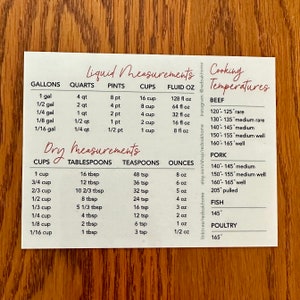 Liquid Measurements
GALLONS QUARTS PINTS CUPS FLUID OZ
1 gal 4 qt 8 pt 16 cup 128 fl oz
1/2 gal 2 qt 4 pt 8 cup 64 fl oz
1/4 gal 1 qt 2 pt 4 cup 32 fl oz
1/8 gal 1/2 qt 1 pt 2 cup 16 fl oz
1/16 gal 1/4 qt 1/2 pt 1 cup 8 fl oz
Dry Measurements
CUPS TABLESPOONS TEASPOONS OUNCES
1 cup 16 tbsp 48 tsp 8 oz
3/4 cup 12 tbsp 36 tsp 6 oz
2/3 cup 10 2/3 tbsp 32 tsp 5 oz
1/2 cup 8 tbsp 24 tsp 4 oz
1/3 cup 5 1/3 tbsp 16 tsp 3 oz
1/4 cup 4 tbsp 12 tsp 2 oz
1/8 cup 2 tbsp 6 tsp 1 oz
1/16 cup 1 tbsp 3 tsp 1/2 oz
Cooking
Temperatures
BEEF
120°- 125° rare
130°- 135° medium rare
135°- 140° medium
140°- 155° medium well
160°- 165° well
PORK
140°- 145° medium
150°- 155° medium well
160°- 165° well
205° pulled
FISH
145°
POULTRY
165°